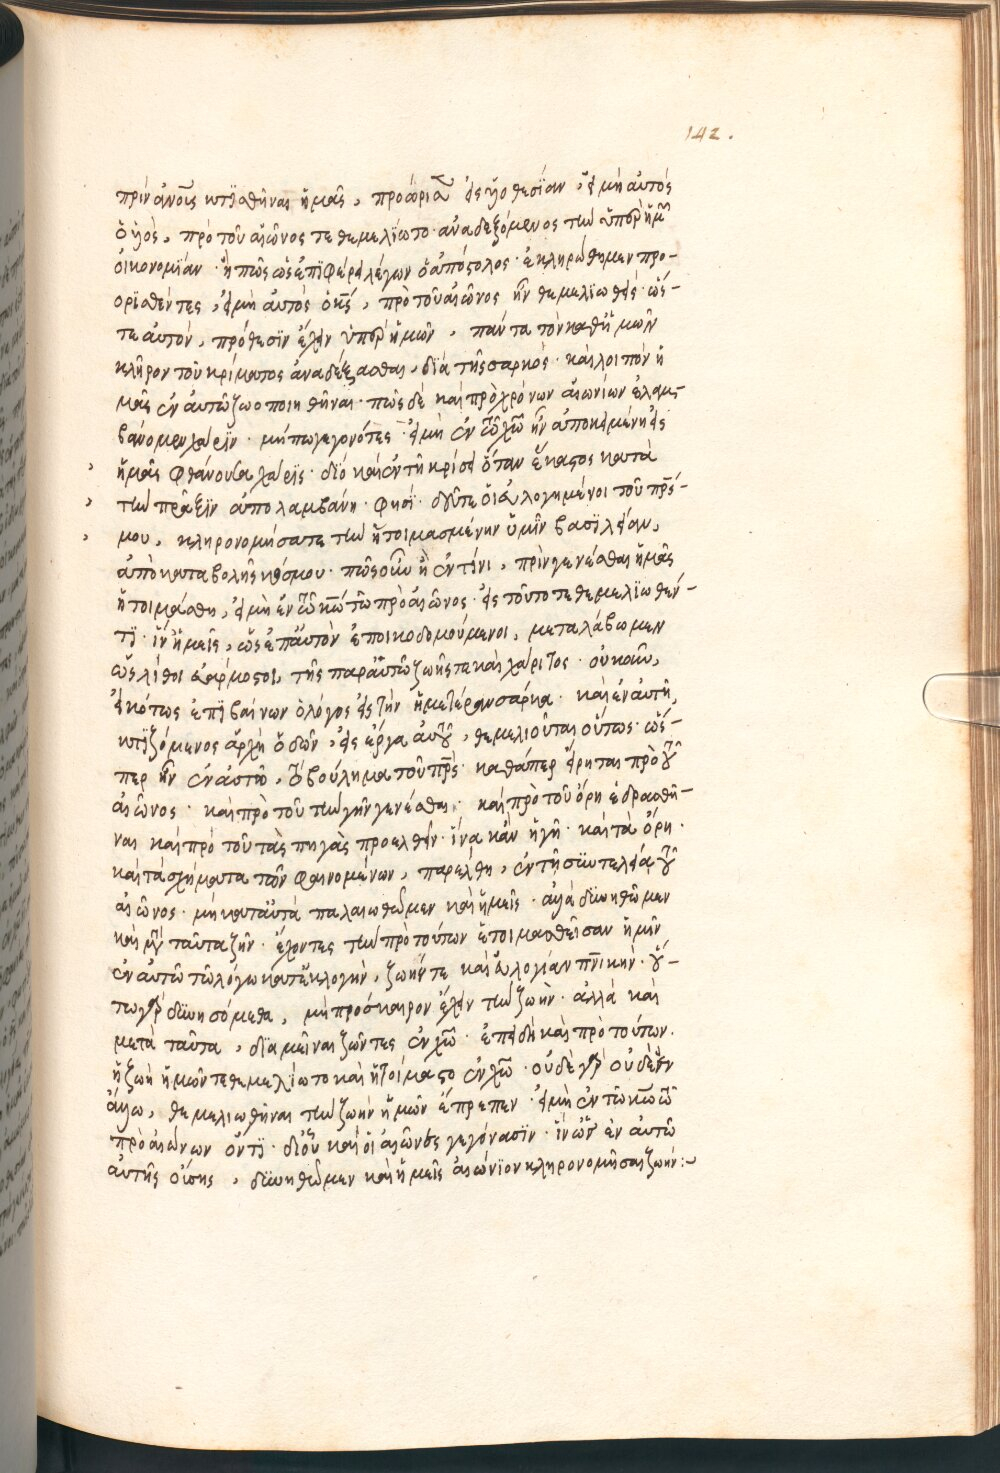 142.
πρὶν ἀνοῦς κτϊσθῆναι ἡμᾶς, προώρισεν εἰς ὑϊοθεσΐαν, εἰ μὴ αὐτὸς
ὁ ὑϊὸς, πρὸ τοῦ αἰῶνος τεθεμελΐωτο ἀναδεξόμενος τὴν ὑπὲρ ἡμῶν
οἰκονομΐαν· ἢ πῶς ὡς ἐπϊφέρει λέγων ὁ ἀπόστολος· ἐκληρώθημεν προ-
ορϊσθέντες, εἰ μὴ αὐτὸς ὁ κς, πρὸ τοῦ αἰῶνος ἦν θεμελϊωθεὶς· ὥσ-
τε αὐτὸν, πρόθεσϊν ἔχειν ὑπὲρ ἡμῶν, πάντα τὸν καθ' ἡμῶν
κλῆρον τοῦ κρίματος ἀναδέξασθαι, δϊὰ τῆς σαρκὸς· καὶ λοιπὸν ἡ
μᾶς ἐν αὐτῶ ζωοποιηθῆναι· πῶς δὲ καὶ πρὸ χρόνων αἰωνίων ἐλαμ-
βάνομεν χάριν· μήπω γεγονότες· εἰ μὴ ἐν τῶ χω ἦν ἀποκειμένη εἰς
ἡμᾶς φθάνουσα χάρϊς· διὸ καὶ ἐν τῆ κρίσει ὅταν ἕκαστος κατὰ
τὴν πρᾶξϊν ἀπολαμβάνη· φησϊ· δεῦτε οἱ εὐλογημένοι τοῦ πρς-
μου, κληρονομήσατε τὴν ἡτοιμασμένην ὑμῖν βασϊλείαν,
ἀπὸ καταβολῆς κόσμου· πῶς οὖν ἢ ἐν τίνι, πρὶν γενέσθαι ἡμᾶς
ἡτοιμάσθη, εἰ μὴ ἐν τῶ κω τῶ πρὸ αἰῶνος· εἰς τοῦτο τεθεμελϊωθέν-
τϊ· ἵν' ἡμεῖς, ὡς ἐπ' αὐτὸν ἐποικοδομούμενοι, μεταλάβωμεν
ὡς λίθοι εὐάρμοστοι, τῆς παρ' αὐτῶ ζωῆς τε καὶ χάριτος· οὐκοῦν,
εἰκότως ἐπϊβαίνων ὁ λόγος εἰς τὴν ἡμετέραν σάρκα· καὶ ἐν αὐτῆ,
κτϊζόμενος ἀρχὴ ὁδῶν, εἰς ἔργα αὐτοῦ, θεμελιοῦται οὕτως· ὥσ-
περ ἦν ἐν αὐτῶ, τὸ βούλημα τοῦ πρς· καθάπερ εἴρηται πρὸ τοῦ
αἰῶνος· καὶ πρὸ τοῦ τὴν γῆν γενέσθαι· καὶ πρὸ τοῦ ὄρη ἑδρασθῆ-
ναι καὶ πρὸ τοῦ τὰς πηγὰς προελθεῖν· ἵνα κἂν ἡ γῆ· καὶ τὰ ὄρη·
καὶ τὰ σχήματα τῶν φαινομένων, παρέλθη, ἐν τῆ συντελεία τοῦ
αἰῶνος· μὴ κατ' αὐτὰ παλαιωθῶμεν καὶ ἡμεῖς· ἀλλὰ δυνηθῶμεν
καὶ μετὰ ταῦτα ζῆν· ἔχοντες τὴν πρὸ τούτων ἑτοιμασθεῖσαν ἡμῖν
ἐν αὐτῶ τῶ λόγω κατ' ἐκλογὴν, ζωήν τε καὶ εὐλογίαν πνικήν· οὕ-
τω γὰρ δυνησόμεθα, μὴ πρόσκαιρον ἔχειν τὴν ζωὴν· ἀλλὰ καὶ
μετὰ ταῦτα, δϊαμεῖναι ζῶντες ἐν χω· ἐπειδὴ καὶ πρὸ τούτων·
ἡ ζωὴ ἡμῶν τεθεμελΐωτο καὶ ἡτοίμαστο ἐν χω· οὐδὲ γὰρ οὐδὲ ἐν
ἄλλω, θεμελιωθῆναι τὴν ζωὴν ἡμῶν ἔπρεπεν· εἰ μὴ ἐν τῶ κω τῶ
πρὸ αἰώνων ὄντϊ· δι' οὗ καὶ οἱ αἰῶνες γεγόνασϊν· ἵν' ὡς ἐν αὐτῶ
αὐτῆς οὔσης, δυνηθῶμεν καὶ ἡμεῖς αἰώνϊον κληρονομῆσαι ζωήν:~